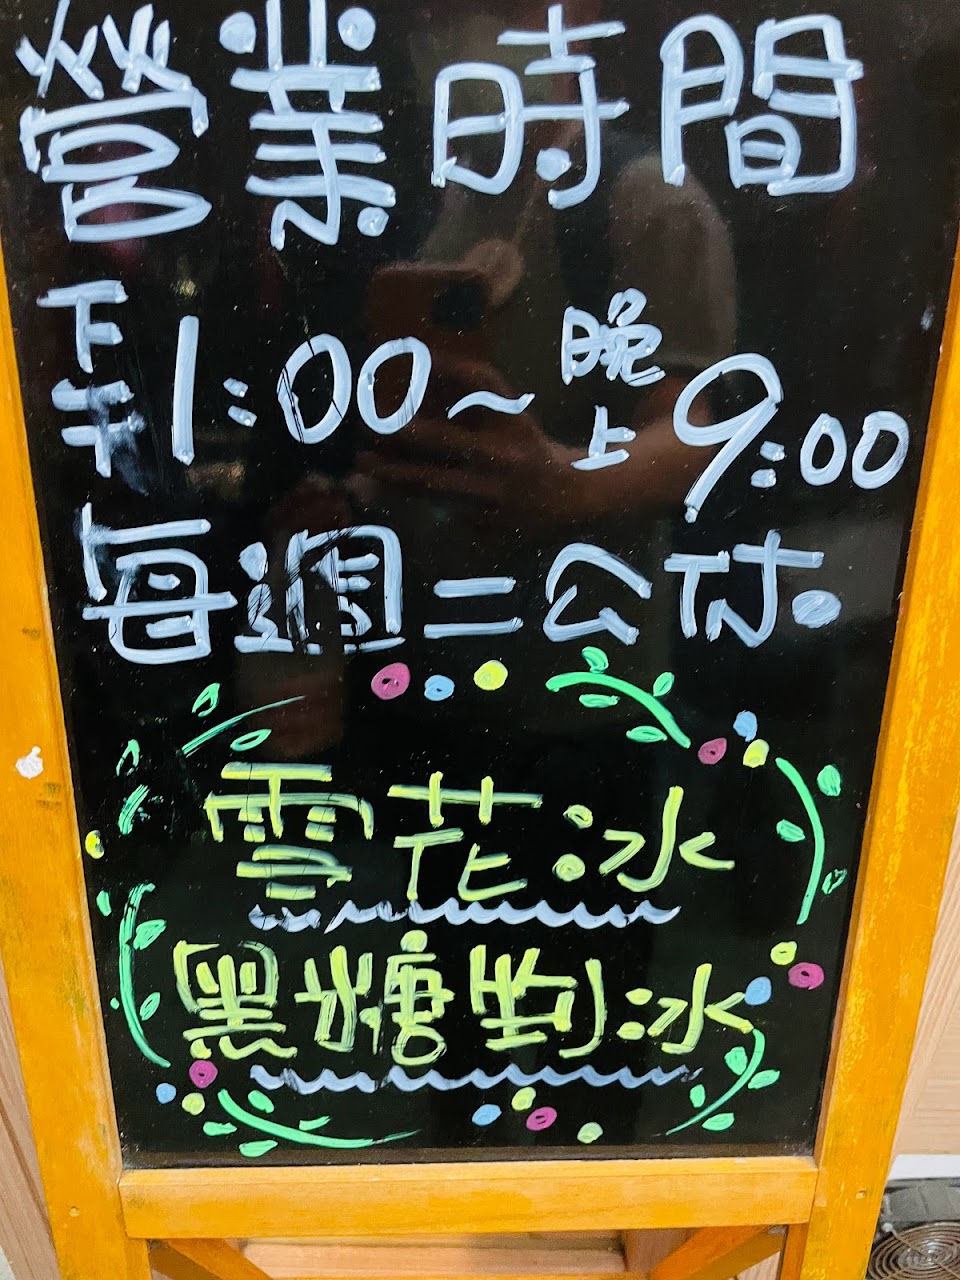 營業時間
下午1:00~晚上9:00
每週二公休
雪花冰
黑糖剉冰